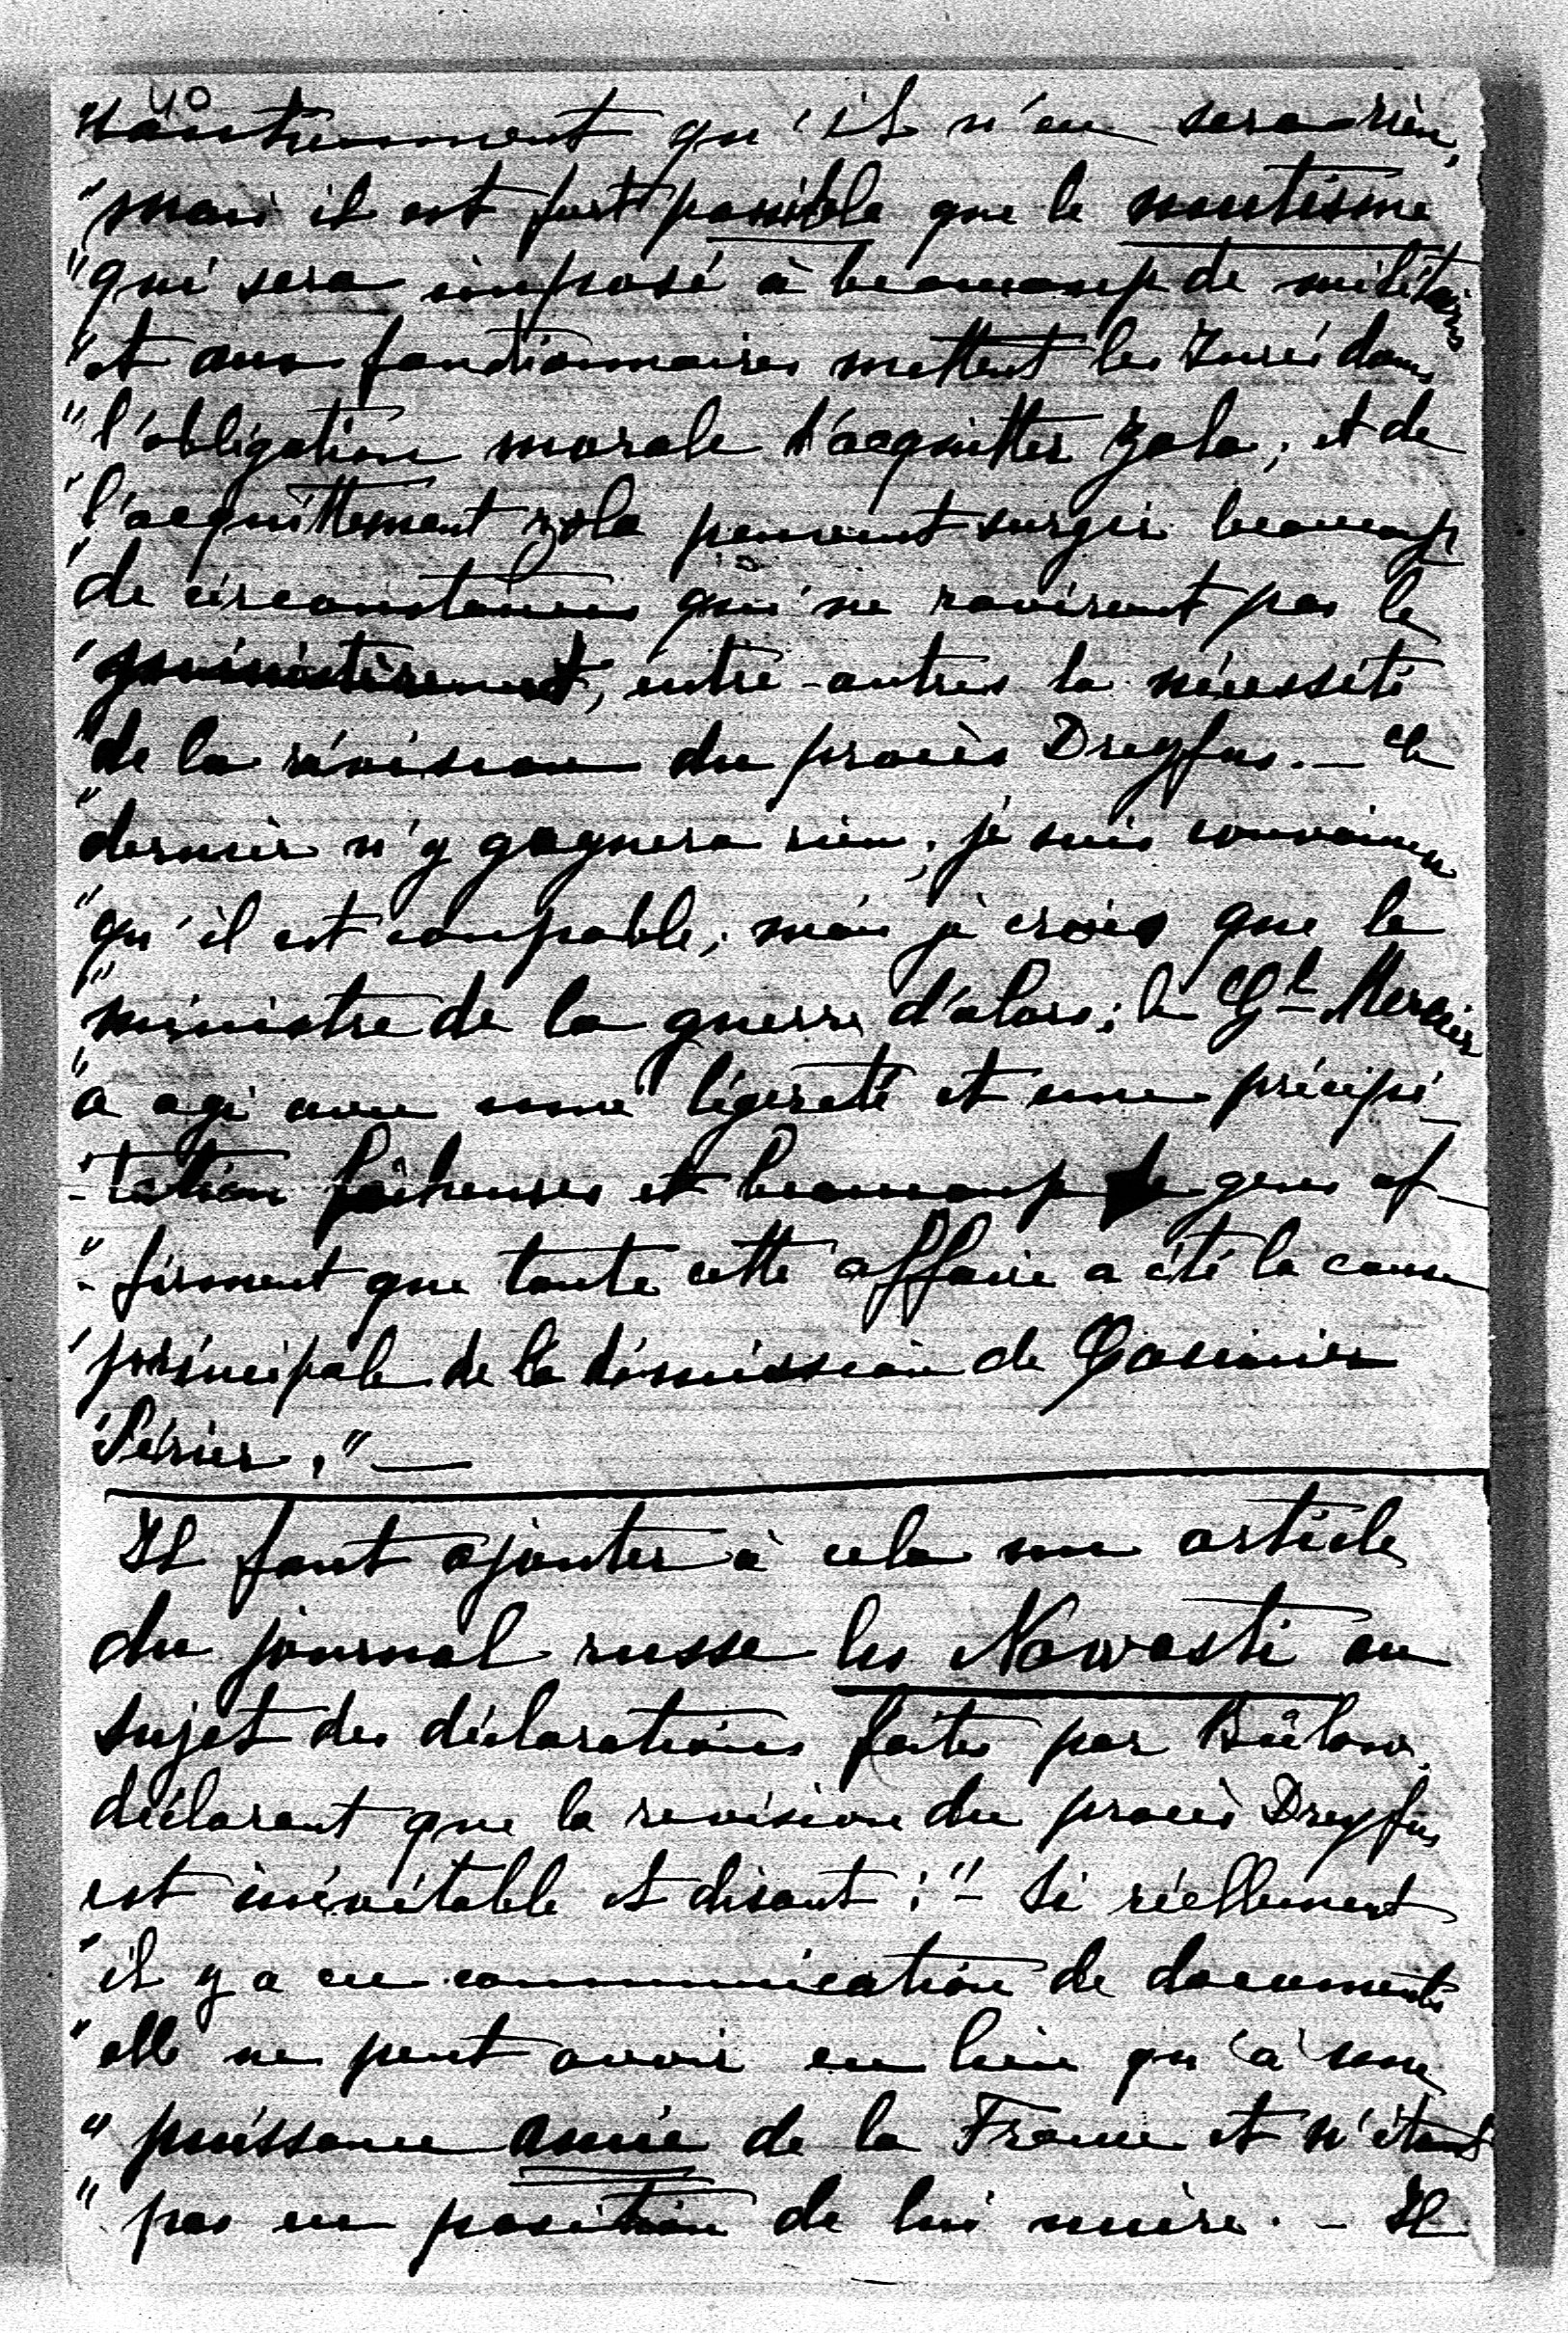 40
"vaintrement qu'il n'en sera rien,
"mais il est fort possible que le mutisme
"qui sera imposé à beaucoup de militaires
"et aux fonctionnaires mettent les Jurés dans
"l'obligation morale d'acquitter Zola; et de
"l'acquittement Zola peuvent surgir beaucoup
"de circonstances qui ne raviront pas le
", entre-autres la nécessité
"de la révision du procès Dreyfus. - Ce
"dernier n'y gagnera rien; je suis convaincu
"qu'il est coupable; mais je crois que le
"ministre de la guerre d'alors; le Gl Mercier
"a agi avec une légèreté et une précipi-
"-tation fâcheuses et beaucoup de gens af-
"-firment que toute cette affaire a été la cause
"principale de la démission de Casimir
"Périer." —
Il faut ajouter à cela un article
du journal russe les Nowosti au
sujet des déclarations faites par Bülow.
déclarant que la revision du procès Dreyfus
est inévitable et disant: "- Si réellement
"il y a eu communication de documents
"elle ne peut avoir eu lieu qu'à une
"puissance amie de la France et n'étant
"pas en position de lui nuire. - Il